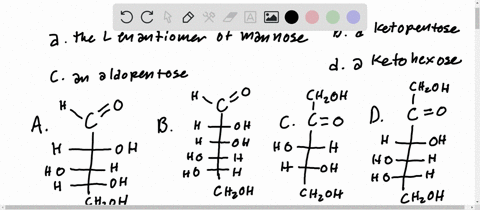 a. the L enantiomer of mannose
b. a ketopentose
c. an aldopentose
d. a ketohexose
A.
H
O
C
H
OH
HO
H
H
OH
CH₂OH
B.
H
O
C
H
OH
H
OH
HO
H
HO
H
CH₂OH
C.
CH₂OH
C=O
HO
H
H
OH
CH₂OH
D.
CH₂OH
C=O
H
OH
HO
H
HO
H
CH₂OH